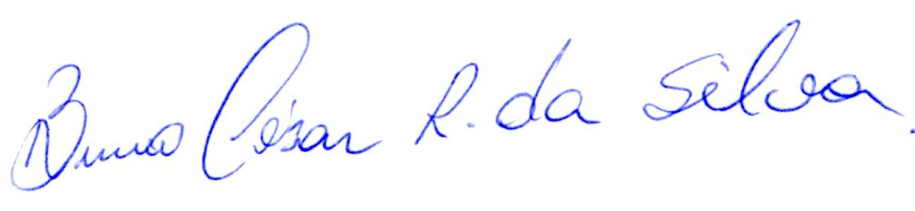 Bruno César R. da Silva.